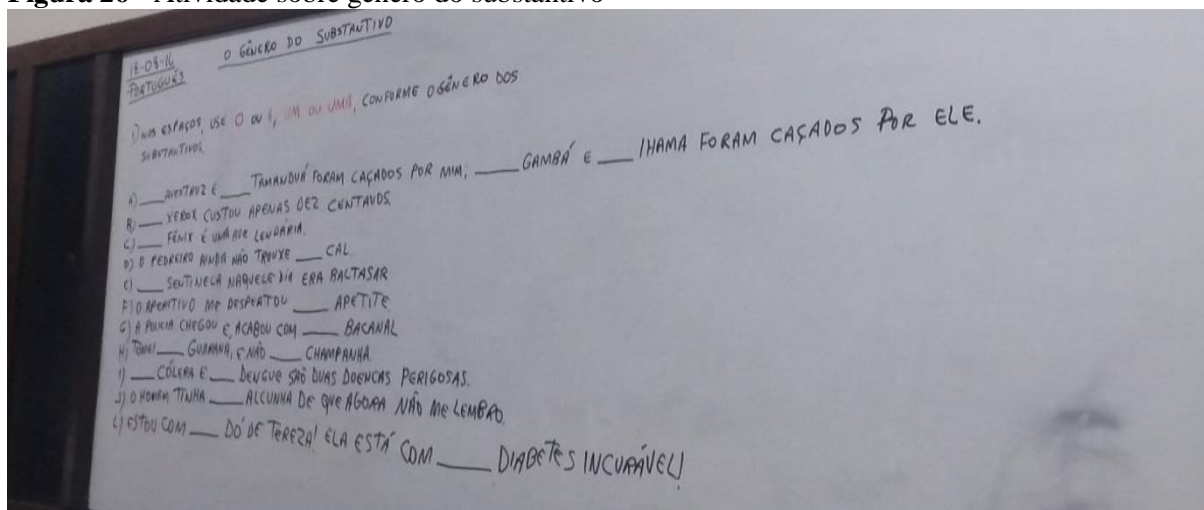 Figura 20 - Atividade sobre gênero do substantivo
18-08-16 O GÊNERO DO SUBSTANTIVO
PORTUGUÊS
1) NOS ESPAÇOS, USE O OU A, UM OU UMA, CONFORME O GÊNERO DOS
SUBSTANTIVOS.
A) ____ AVESTRUZ E ____ TAMANDUÁ FORAM CAÇADOS POR MIM; ____ GAMBÁ E ____ LHAMA FORAM CAÇADOS POR ELE.
B) ____ XEROX CUSTOU APENAS DEZ CENTAVOS.
C) ____ FÊNIX É UMA AVE LENDÁRIA.
D) O PEDREIRO AINDA NÃO TROUXE ____ CAL.
E) ____ SENTINELA NAQUELE DIA ERA BALTASAR
F) O APERITIVO ME DESPERTOU ____ APETITE
G) A POLICIA CHEGOU E, ACABOU COM ____ BACANAL
H) TOMEI ____ GUARANÁ, E NÃO ____ CHAMPANHA.
I) ____ CÓLERA E ____ DENGUE SÃO DUAS DOENCAS PERIGOSAS.
J) O HOMEM TINHA ____ ALCUNHA DE QUE AGORA NÃO ME LEMBRO.
L) ESTOU COM ____ DÓ DE TEREZA! ELA ESTÁ COM ____ DIABETES INCURÁVEL!